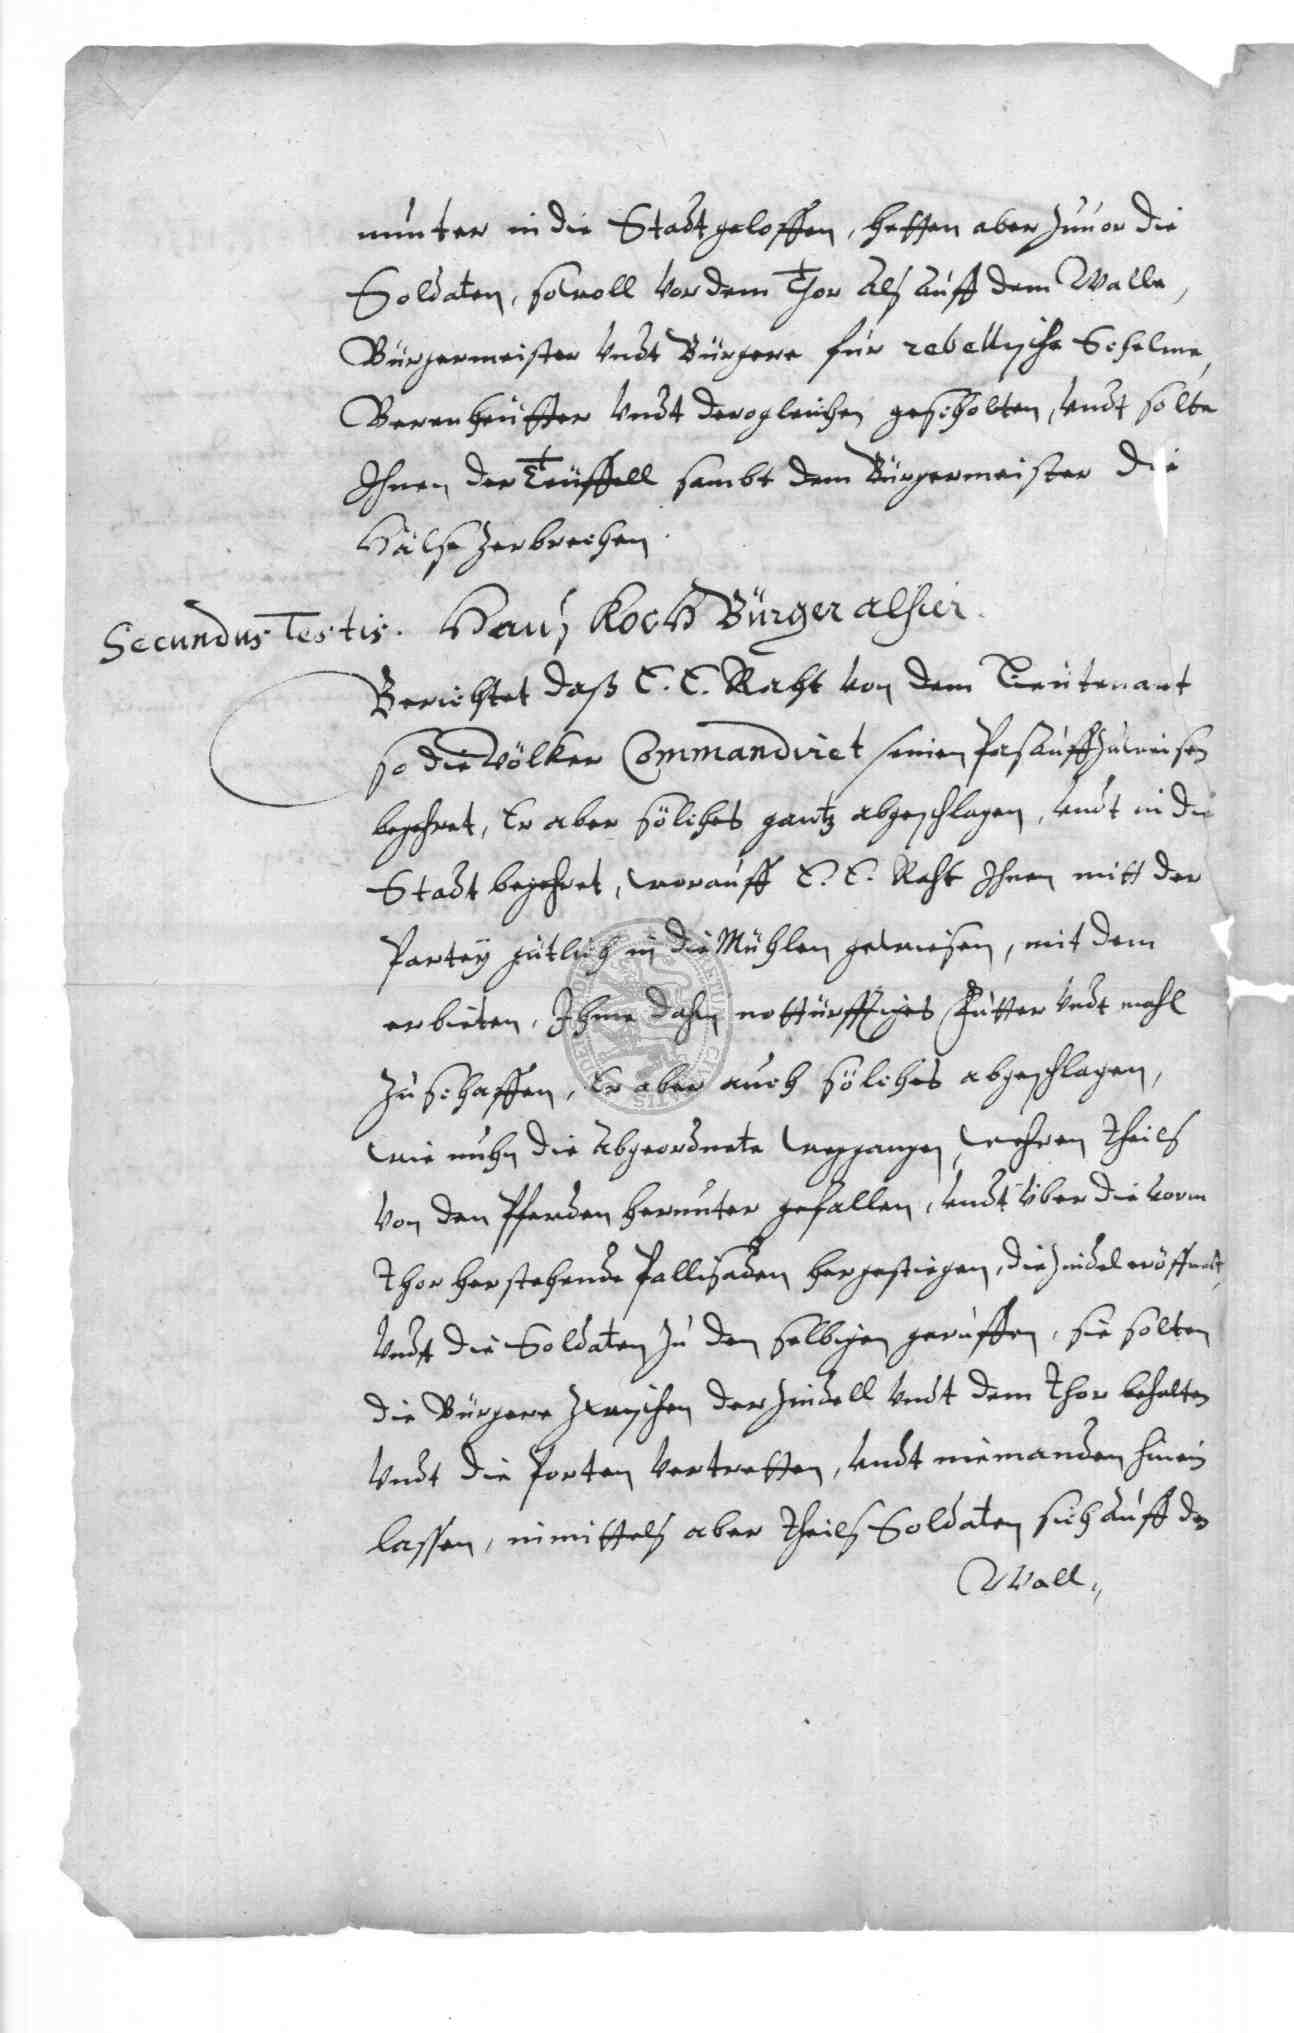 nunter in die Stadt geloffen, hetten aber zuuor die
Soldaten, sowoll vor dem Thor als auff dem Walle,
Bürgermeister undt Bürgere für rebellische Schelme,
Berenheuter undt derogleichen gescholten, undt solte
Ihnen der Teuffell sambt dem Bürgermeister die
Hälse zerbrechen.
Secundus Testis. Hans Koch Bürger alhier.
Berichtet daß E. E. Raht von dem Lieutenant
so die Völker Commandiret seinen Pas auffzuweisen
begehret, Er aber sölches gantz abgeschlagen, undt in die
Stadt begehret, worauff E. E. Raht Ihnen mitt der
Partey gütlich in die Mühlen gewiesen, mit dem
erbieten, Ihme dahin nottürfftiges Futter undt mahl
zu schaffen, Er aber auch sölches abgeschlagen,
wie nuhn die Abgeordnete weggangen, wehren theils
von den Pferden herunter gefallen, undt über die vorm
Thor herstehende Pallisaden hergestiegen, die zindel eröffnet,
undt die Soldaten zu den selbigen geruffen, sie solten
die Bürgere zwischen der zindell undt dem Thor behalten
undt die Porten vertretten, undt niemanden hinein
lassen, inmittels aber theils Soldaten sich auff den
Wall,,